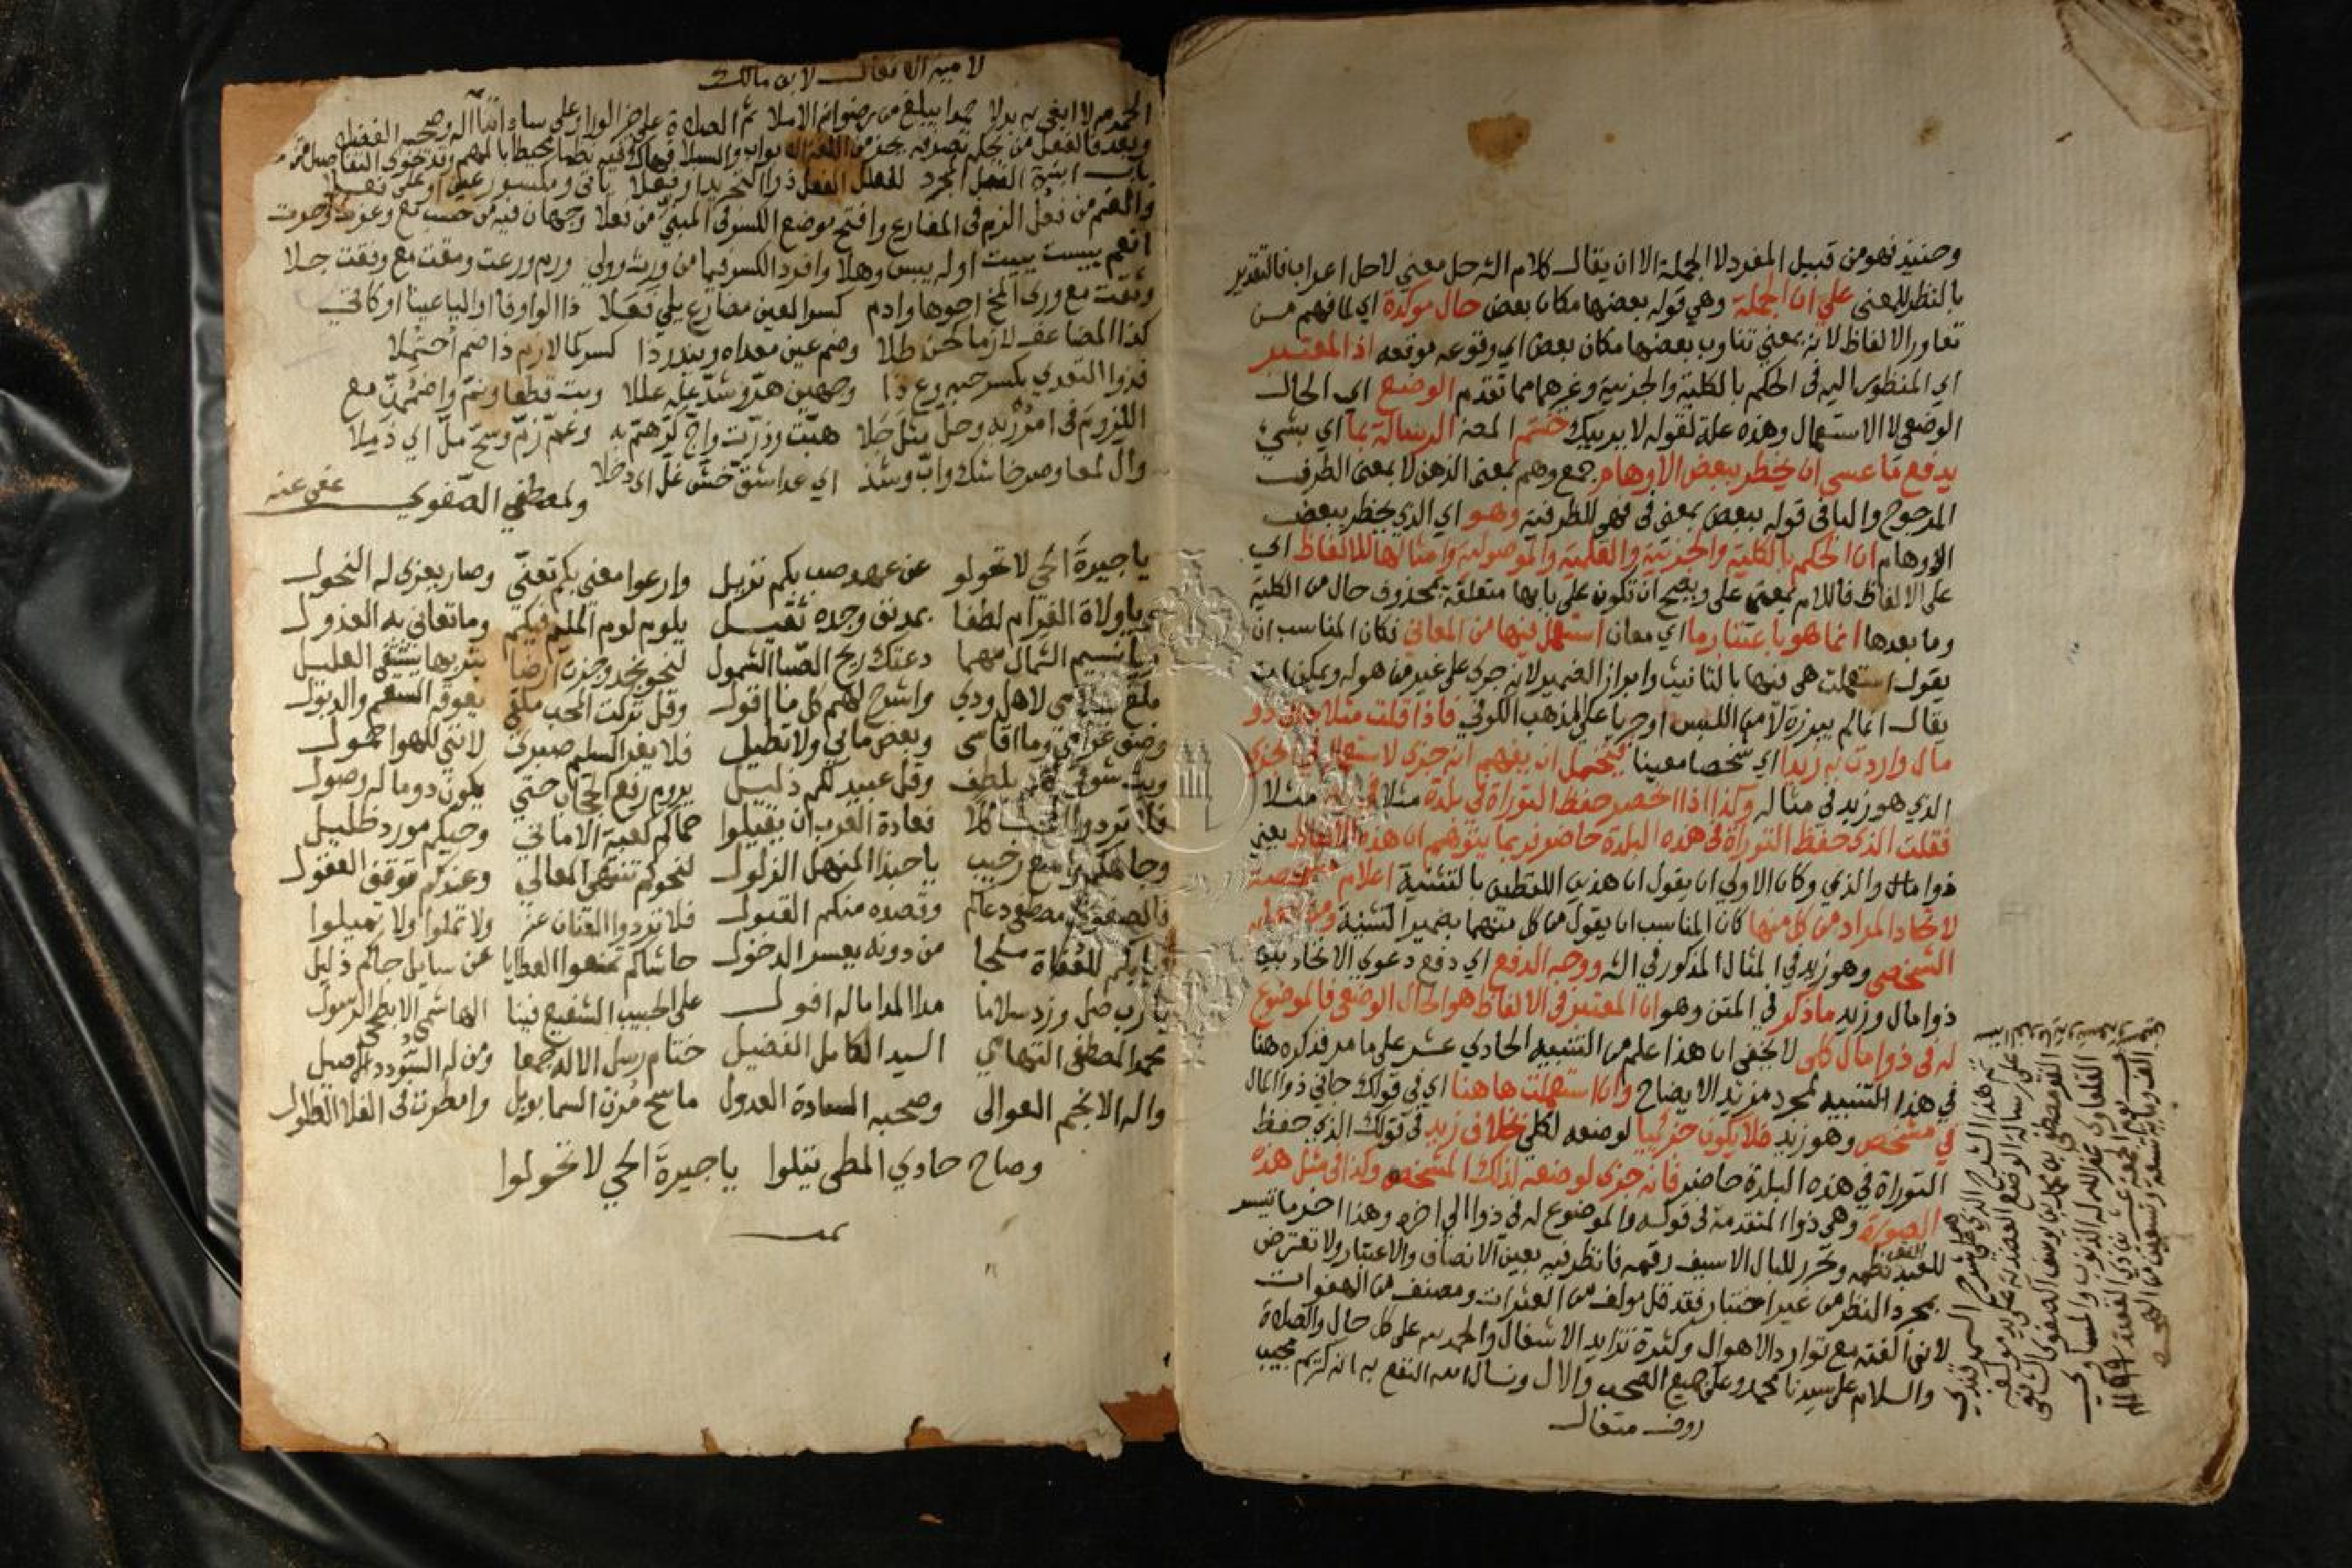 وحينئذ فهو من قبيل المفرد لا الجملة الا ان يقال كلام الشه حل معني لا حل اعراب فالتقدير
بالنظر للمعنى علي ان الجملة وهي قوله بعضها مكان بعض حال موكدة اي لما فهم من
تعاور الالفاظ لانه بمعني تناوب بعضها مكان بعض اي وقوعه موقعه اذ المعتبر
اي المنظور اليه في الحكم بالكلية والجزيية وغيرهما مما تقدم الوضع اي الحال
الوضعي لا الاستعمال وهذه علة لقوله لا يريبك ختم المصـ الرسالة بما اي بشيء
يدفع ما عسي ان يخطر ببعض الاوهام جمع وهم بمعنى الذهن لا بمعنى الطرف
المرجوح والبا في قوله ببعض بمعنى في فهي للظرفية وهو اي الذي يخطر ببعض
الاوهام ان الحكم بالكلية والجزيية والعلمية والموصولية وامثالها للالفاظ اي
على الالفاظ فاللام بمعنى على ويصح ان تكون على بابها متعلقة بمحذوف حال من الكلية
وما بعدها انما هو باعتبار ما اي معان استعمل فيها من المعاني فكان المناسب ان
يقول استعملت هي فيها بالتانيث وابراز الضمير لانه جرى على غير من هو له ويمكن ان
يقال انما لم يبرزه لامن اللبس او جريا على مذهب الكوفي فاذا قلت مثلا جاني ذو
مال واردت به زيدا اي شخصا معينا فيحتمل ان يفهم انه جزي لاستعماله في الجزي
الذي هو زيد في مثاله وكذا اذا انحصر حفظ التوراة في بلدة مثلا في زيد مثلا
فقلت الذي حفظ التوراة في هذه البلدة حاضر فربما يتوهم ان هذه الالفاظ يعني
ذو امال والذي وكان الاولي ان يقول ان هذين اللفظين بالتثنية اعلام شخصية
لاتحاد المراد من كل منها كان المناسب ان يقول من كل منهما بضمير التثنية ومن العلم
الشخصي وهو زيد في المثال المذكور في الشه ووجه الدفع اي دفع دعوي الاتحاد بين
ذوا مال وزيد ما ذكر في المتن وهو ان المعتبر في الالفاظ هو الحال الوضعي فالموضوع
له في ذوا مال كلي لا يخفى ان هذا علم من التنبيه الحادي عشر على ما مر فذكره هنا
في هذا التنبيه لمجرد مزيد الايضاح وان استعملت ها هنا اي في قولك جاني ذو المال
في مشخص وهو زيد فلا يكون جزئيا لوضعه لكلي بخلاف زيد في قولك الذي حفظ
التوراة في هذه البلدة حاضر فانه جزي لوضعه لذلك المشخص وكذا في مثل هذه
الصورة وهي ذوا المتقدمة في قوله والموضوع له في ذوا الي اخره وهذا اخر ما تيسر
للعبد الفقير نظمه وتحرر للبال الاسيف رقمه فانظر فيه بعين الانصاف والاعتبار ولا تعترض
بمجرد النظر من غير اختبار فقد قل مولف من العثرات ومصنف من الهفوات
لانني الفته مع توارد الاهوال وكثرة تزايد الاشغال والحمد لله على كل حال والصلاة
والسلام على سيدنا محمد وعلى جميع الصحب والال ونسال الله النفع به انه كريم مجيب
روف متعال
تم هذا الشرح الذي على شرح السمرقندي
على رسالة الوضع العضدية على يد مولفه
الفقير مصطفى بن محمد بن يوسف الصفوي الشافعي
القلعاوي غفر الله له الذنوب والمساوي
يوم الجمعة في ذي القعدة ١١٩٩
الف وماية تسعة وتسعين من الهجرة
لامية الافعال لابن مالك
الحمد لله لا ابغي به بدلا حمدا يبلغ من رضوانه الاملا ثم الصلاة على خير الورا وعلى ساداتنا اله وصحبه الفضلا
وبعد فالفعل من يحكم تصرفه يحز من اللغة الابواب والسبلا فهاك نظما محيطا بالمهم وقد حوى التفاصيل من
باب ابنية الفعل المجرد بفعلل الفعل ذو التجريد او فعلا ياتي ومكسور عين او على فعلا
والضم من فعل الزم في المضارع وافتح موضع الكسر في المبني من فعلا وجهان فيه من حسب مع وغرت وحرت
انعم بيست ييست اوله يبس وهلا وافرد الكسر فيما من ورث وولي ورم ورعت ومقت مع وفقت حلا
وثقت مع وري المخ احوها وادم كسر العين مضارع يلي فعلا ذا الواو فا او اليا عينا او كاتي
كذا المضاعف لازما كحن طلا وضم عين معداه ويندر ذا كسر كما لازم ذا ضم احتملا
فذو التعدي بكسر حبه وع ذا وجهين هر وشد عله عللا وبت قطعا ونم واضممن مع
اللزوم في امرر به وجل مثل جلا هبت وذرت واج كر هم به وعم زم وسح مل اي ذملا
وال لمعا وصرخا شك واب وشد اي عدا شق خش غل اي دخلا
ولمصطفي الصفوي عفى عنه
يا جيرة الحي لا تحولو عن عهد صب بكم نزيل وارعوا معنى بكم تعنى وصار يعزى له النحول
ويا ولاة الغرام لطفا بمدنف وجده ثقيل يلوم لوم المليم فيكم وما تعاني به العذول
ويا نسيم الشمال مهما دعتك ريح الصبا الشمول لنحو نجد وحزت ارضا بتربها يشتفى العليل
بلغ سلامي لاهل ودي واشرح لهم كل ما اقول وقل تركت المحب ملقى يعوقه السقم والذبول
وصف غرامي وما اقاسى وبعض ما بي ولا تطيل فلا يغر السلم صبري لانني للهوا حمول
وبث شوقي لهم بلطف وقل عبيد لكم ذليل يروم رفع الحجاب حتى يكون دوما له وصول
فلا تردوا المحب كلا فعادة العرب ان يقيلوا حماكم كعبة الاماني وحيكم مورد ظليل
وجاهكم واسع رحيب يا حبذا المنهل الزلول لنحوكم تنتهي المعالي وعندكم توقف العقول
فالصفوي مصطفى دعاكم وقصده منكم القبول فلا تردوا العنان عنه ولا تملوا ولا تميلوا
وبابكم للعفاة ملجا من دونه يعسر الدخول حاشاكم تمنعوا العطايا عن سايل جاكم ذليل
يا رب صل وزد سلاما مدا المدا ماله افول على الحبيب الشفيع فينا الهاشمي الابطحي الرسول
محمد المصطفى التهامي السيد الكامل الفضيل ختام رسل الاله جمعا ومن له السودد الاصيل
واله الانجم العوالي وصحبه السادة العدول ما سح مزن السما بوبل وامطرت في الفلا الطلول
وصاح حادي المطي يتلوا يا جيرة الحي لا تحولوا
تمت